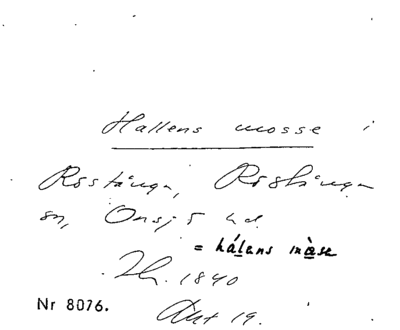 Hallens mosse i
Röstånga, Röstånga
sn, Onsjö hd.
= hálans màse
Th. 1840
Nr 8076. Akt 19.